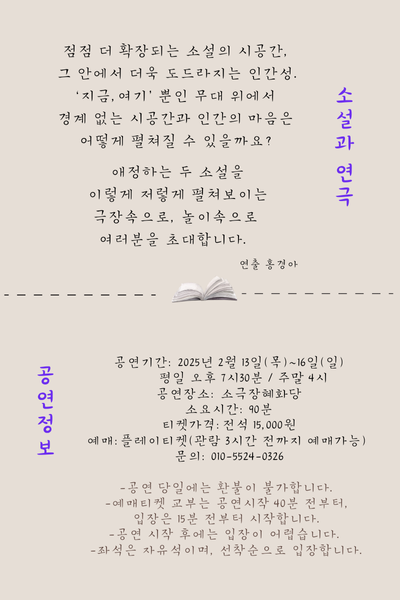 점점 더 확장되는 소설의 시공간,
그 안에서 더욱 도드라지는 인간성.
‘지금, 여기’ 뿐인 무대 위에서
경계 없는 시공간과 인간의 마음은
어떻게 펼쳐질 수 있을까요?
애정하는 두 소설을
이렇게 저렇게 펼쳐보이는
극장속으로, 놀이속으로
여러분을 초대합니다.
연출 홍경아
소설과 연극
공연정보
공연기간: 2025년 2월 13일(목)~16일(일)
평일 오후 7시30분 / 주말 4시
공연장소: 소극장혜화당
소요시간: 90분
티켓가격: 전석 15,000원
예매: 플레이티켓(관람 3시간 전까지 예매가능)
문의: 010-5524-0326
-공연 당일에는 환불이 불가합니다.
-예매티켓 교부는 공연시작 40분 전부터,
입장은 15분 전부터 시작합니다.
-공연 시작 후에는 입장이 어렵습니다.
-좌석은 자유석이며, 선착순으로 입장합니다.